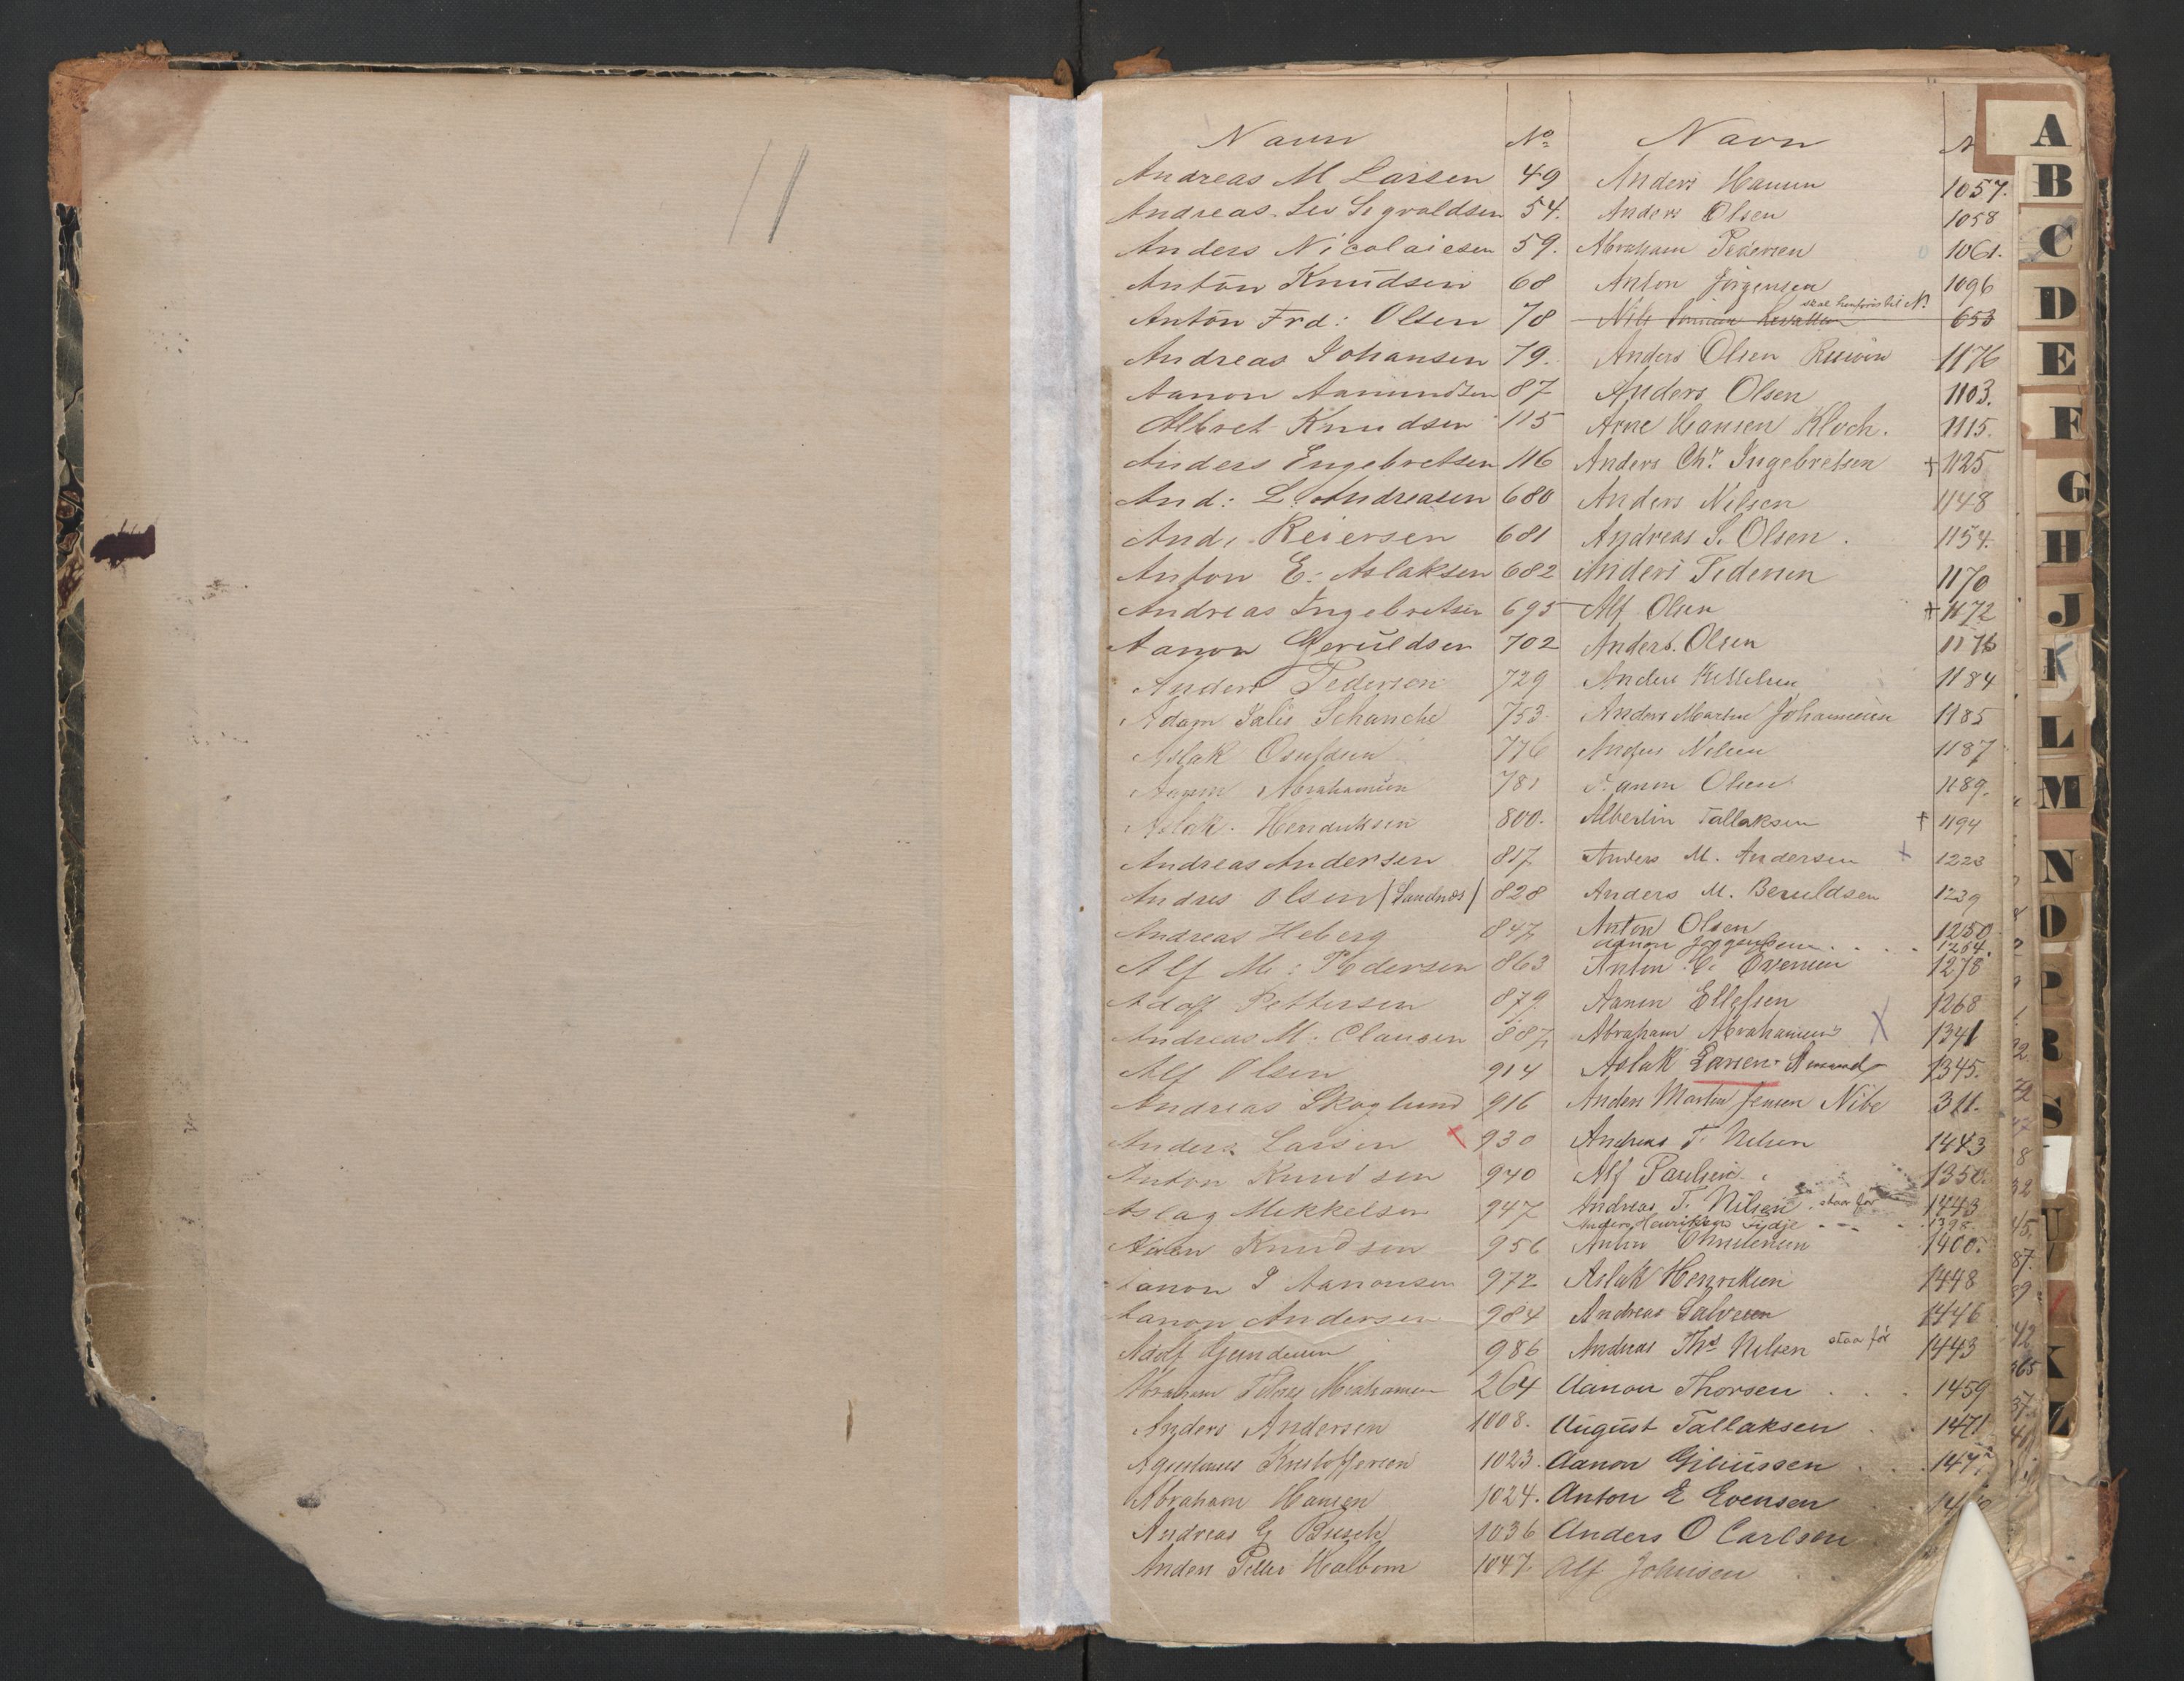 11
Navn No
Andreas M Larsen 49
Andreas Leo Sigvaldsen 54.
Anders Nicolaiesen 59.
Anton Knudsen 68
Anton Frd: Olsen 78
Andreas Johansen 79.
Aanon Aamundsen 87
Albret Knudsen 115
Anders Engebretsen 116
And: L. Andreasen 680
And: Reiersen 681
Anton E: Aslaksen 682
Andreas Ingebretsen 695
Aanon Geruldsen 702
Anders Pedersen 729
Adam Schanche 753.
Aslak Osuldsen 776
Abrahamsen 781
Aslak. Hendriksen 800.
Andreas Andersen 817
Andres Olsen (Sandnæs) 828
Andreas Heberg 847
Alf M: Pedersen 863
Adolf Pettersen 879.
Andreas M. Clausen 887
Alf Olsen 914
Andreas Skoglund 916
Anders Larsen x 930
Anton Knudsen 940
Aslag Mikkelsen 947
Knudsen 956
Aanon J Aanonsen 972
Aanon Andersen 984
Adolf Gundersen 986
Abraham Abrahamsen 264
Anders Andersen 1008.
Kristoffersen 1023.
Abraham Hansen 1024.
Andreas G Busch 1036
Anders Petter Halbom 1047
Navn
Anders Hansen 1057.
Anders Olsen 1058
Abraham Pedersen 1061.
Anton Jörgensen 1096
skal henføres til N.
Nils 653
Anders Olsen 1176
Anders Olsen 1103.
Arne Hansen Kloch. 1115.
Anders Chr. Ingebretsen + 1125
Anders Nilsen 1148
Andreas S. Olsen. 1154.
Anders Pedersen 1170
Alf Olsen + 1172
Anders. Olsen 1176
Anders Kittelsen 1184
Anders Martin Johannesen 1185
Anders Nilsen 1187
Aanon Olsen 1189.
Albertin Tallaksen + 1194
Anders M. Andersen + 1223
Anders M. Beruldsen 1239
Anton Olsen 1250
Aanon Jørgensen . . . . 1264.
Anton C. 1278
Aanen Ellefsen 1268
Abraham Abrahamsen X 1341
Aslak Larsen 1345.
Anders Martin Jensen Nibe 311.
Andreas T. Nilsen 1443
Alf Paulsen 1350.
Andreas T. Nilsen staar før 1443
Anders Henriksen . . . 1398.
Anton Christensen 1400.
Aslak Henriksen 1448
Andreas Salvesen 1446
Andreas Ths Nilsen staar før 1443
Aanon Thorsen . . . 1459
August Tallaksen . . 1471
Aanon Giliussen . . . 147
Anton E Evensen
Anders O Carlsen
Alf Johnsen .
A
B
C
D
E
F
G
H
J
K
L
M
N
O
P
R
S
U
V
K
Z